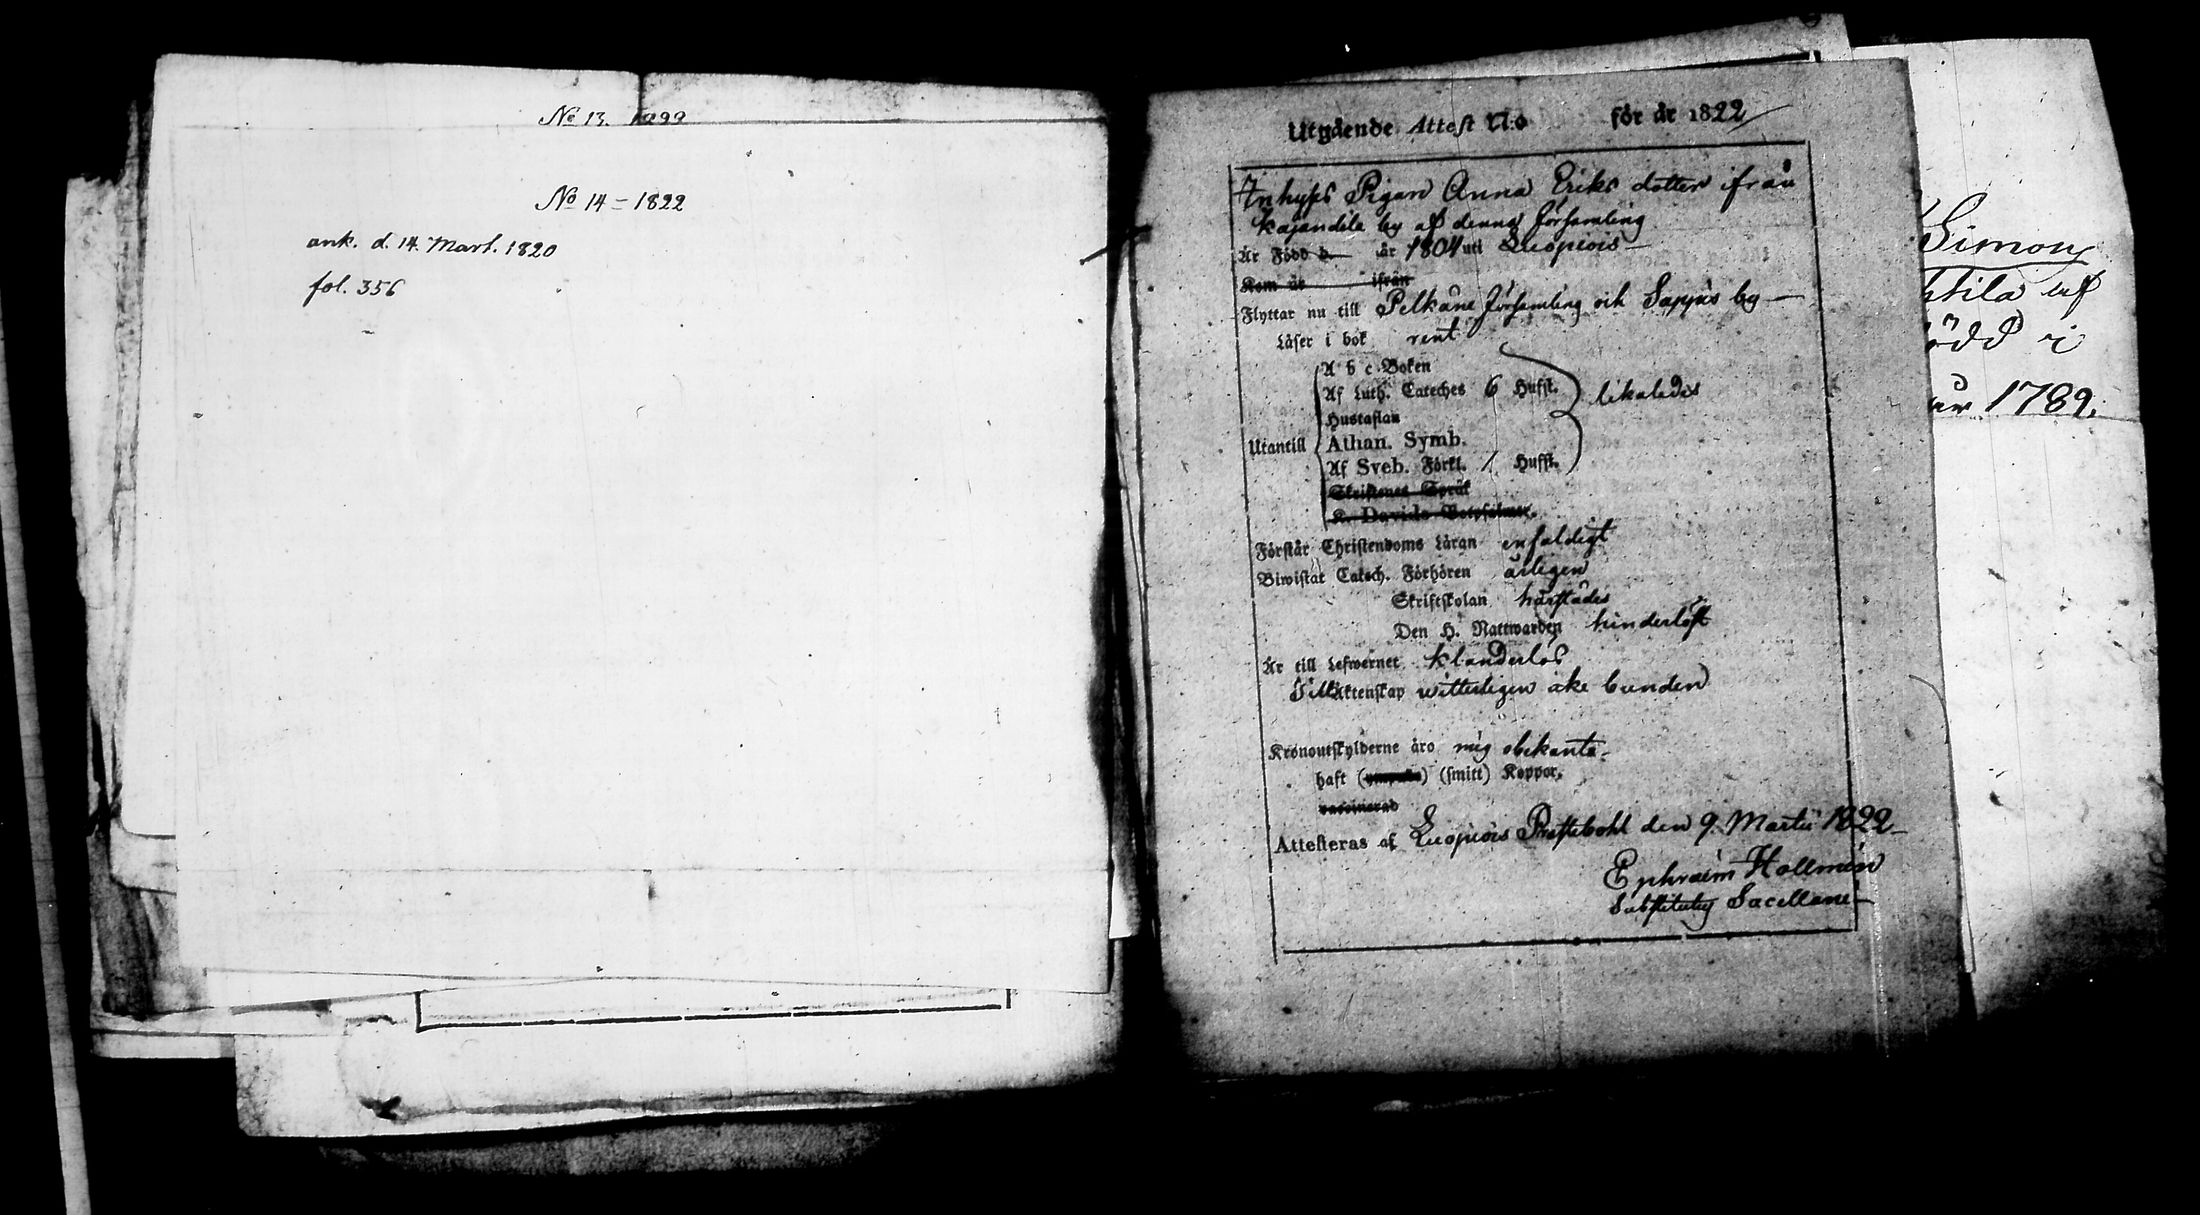 No 13. 1822
No 14 – 1822
ank. d. 14 Mart. 1820
fol. 356
Utgående Attest N:o för år 1822
Inhyses Pigan Anna Eriks dotter ifrån
Kajandila by af denna församling
Är Född d. — år 1804 uti Luopiois —
Kom år ifrån
Flyttar nu till Pelkäne församling och Sappis by —
Läser i bok rent
A b c-Boken
Af Luth. Cateches 6 Hufst.
likaledes
Hustaflan
Utantill
Athan. Symb.
Af Sveb. Förkl. / Hufst.
Skriftenes Språk
K. Davids Botpsalmer.
Förstår Christendoms Läran enfaldigt
Biwistat Catech. Förhören årligen
Skriftskolan härstädes
Den H. Nattwarden hinderlöst
Är till Lefwernet klanderlös
Till Äktenskap witterligen icke bunden
Kronoutskylderne äro mig obekanta.
haft () (smitt) Koppor.
vaccinerad
Attesteras af Luopiois Prästebohl den 9 Martii 1822 —
Ephraim Hollmén
Substitutus Sacellane —
Simon
htila af
ödd i
år 1789.